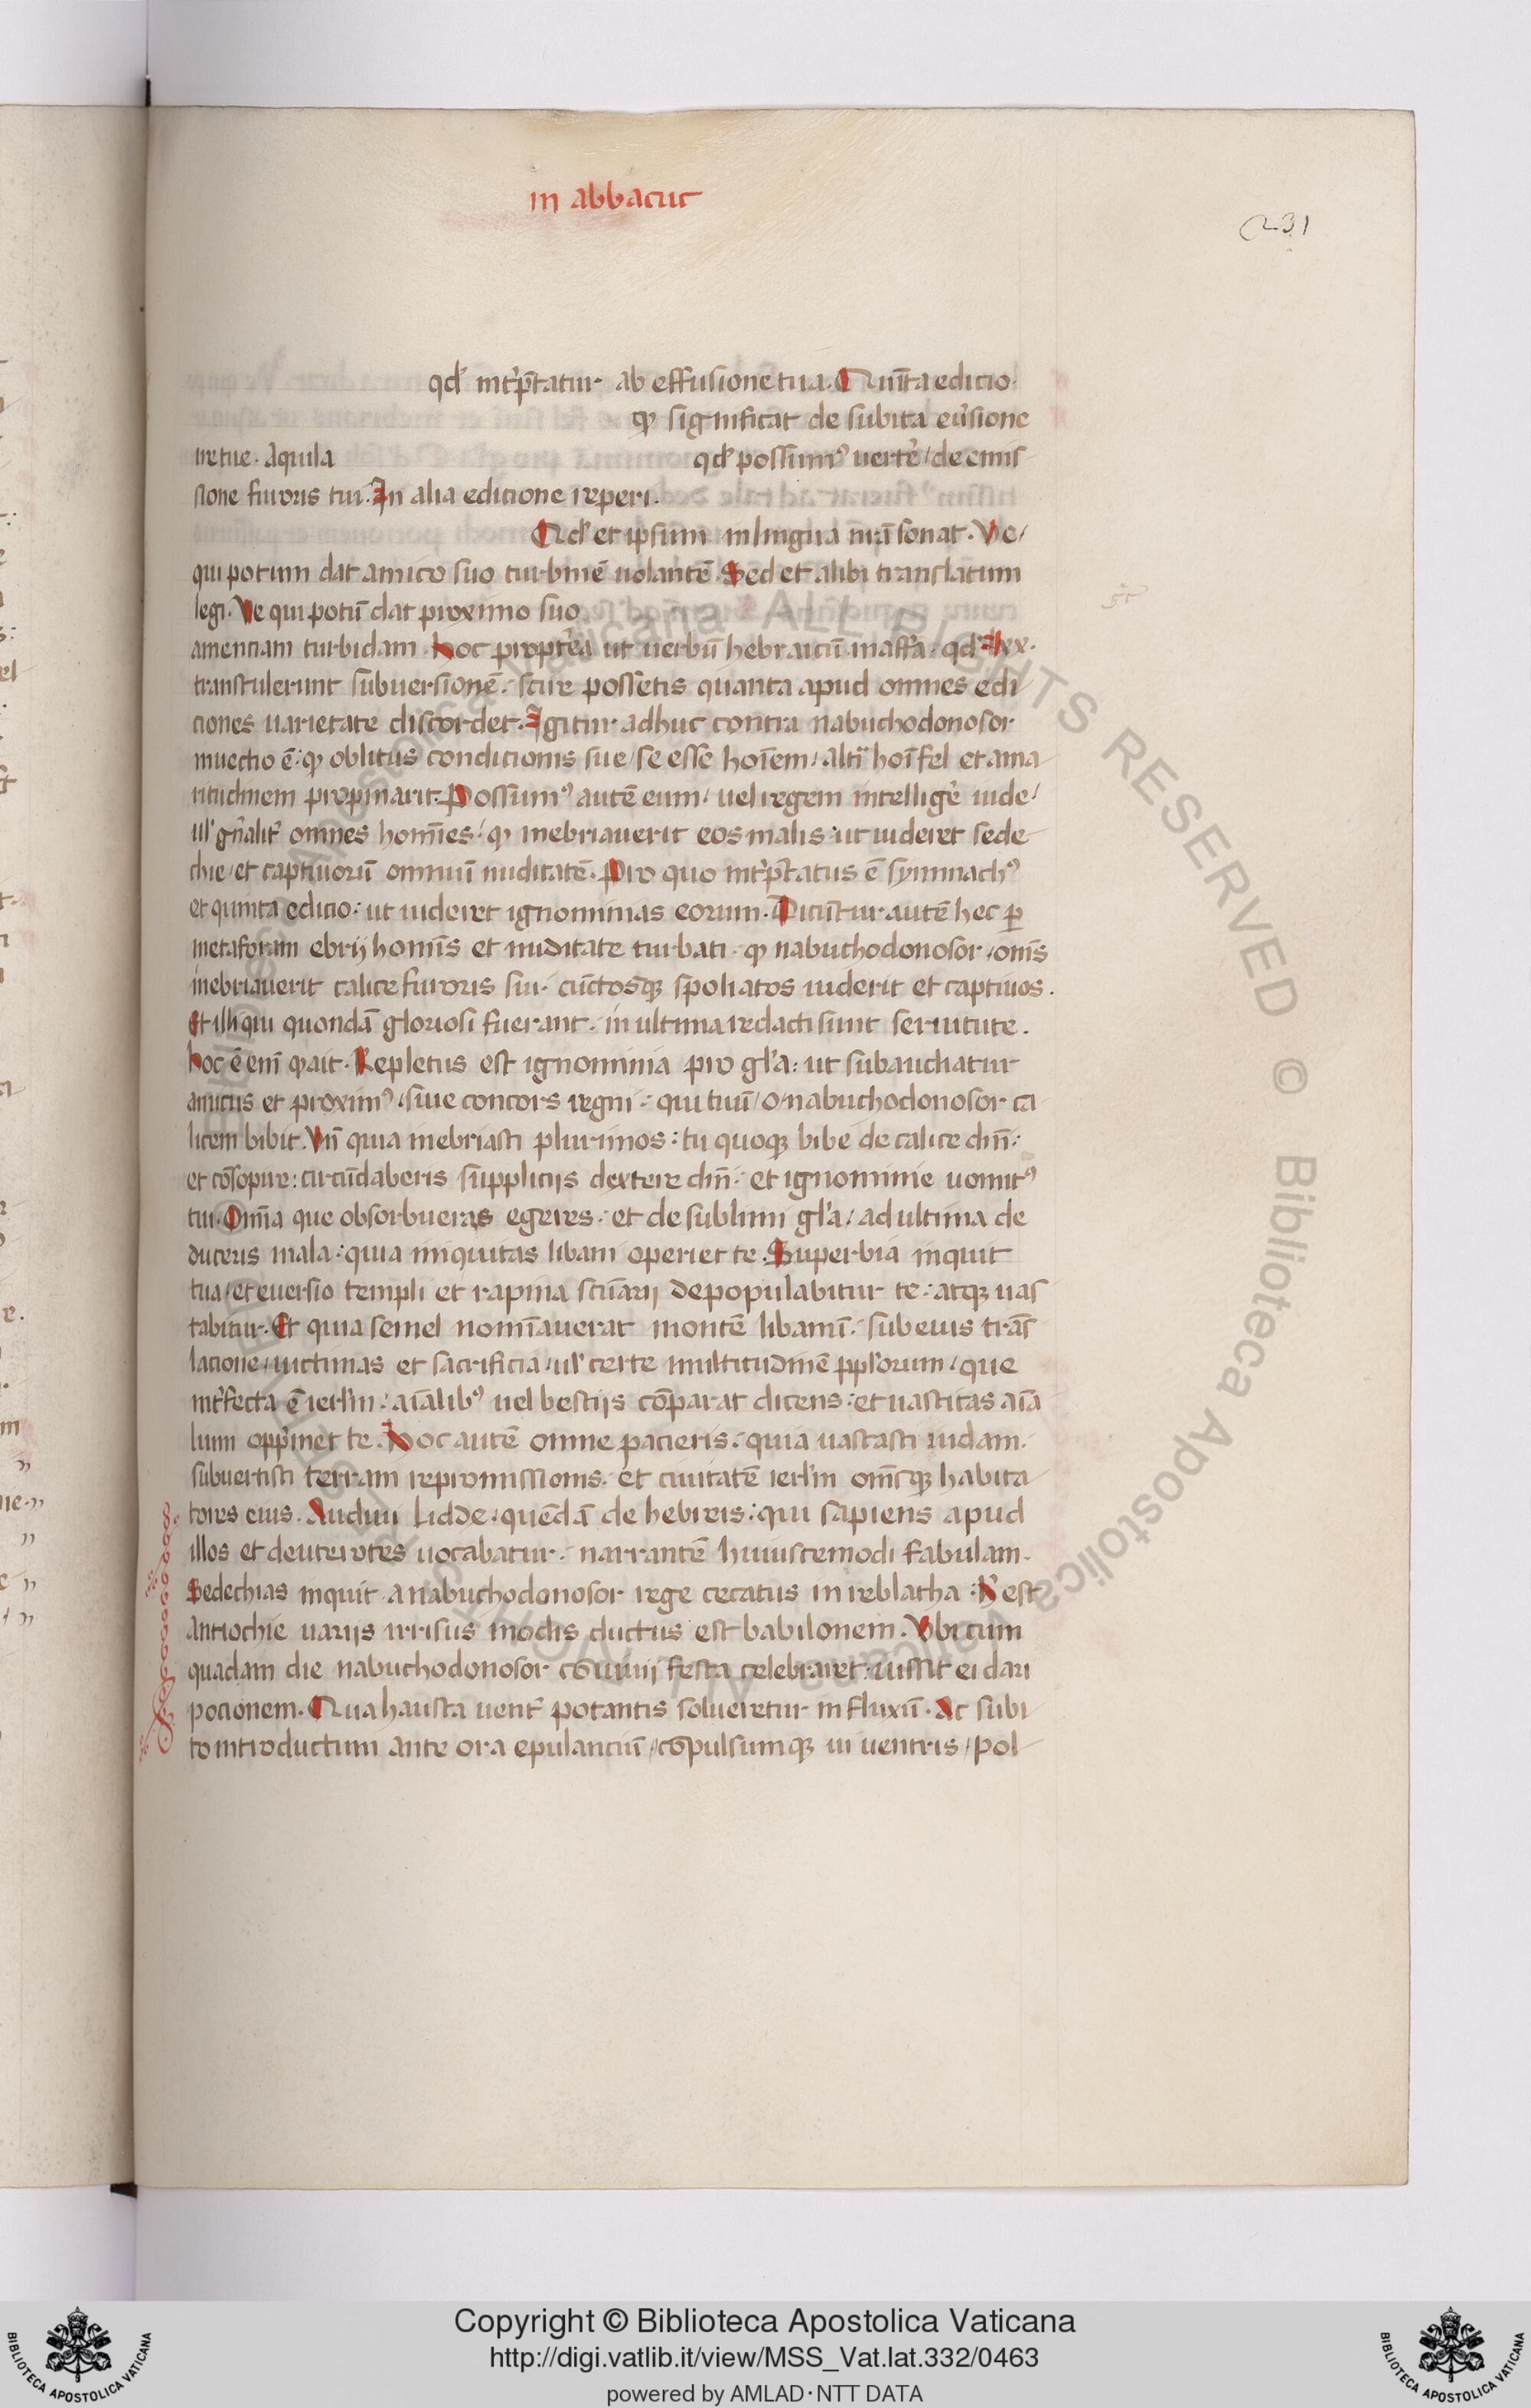 in abbacuc
231
qd' int'p̄tatur ab effusione tua. Quīta edicio.
qͥ significat de subita eu'sione
ire tue. Aquila qd' possumꝰ uert'e / de emis
sione furoris tui. In alia edicione reperi.
Qd' et ipsum in lingua nr̄a sonat. Ve /
qui potum dat amico suo turbinē uolantē. Sed et alibi translatum
legi. Ve qui potū dat proximo suo
amentiam turbidam. Hoc propt'ea ut uerbū hebraicū maffa. qd' lxx.
transtulerunt subuersionē. scire possetis quanta apud omnes edi
ciones uarietate discordet. Igitur adhuc contra nabuchodonosor
inuectio ē. qͥ oblitus condicionis sue / se esse hoīem / alt'i hoī fel et ama
ritudinem propinarit. Possumꝰ autē eum / uel regem intellig'e iude /
ul' gn̄alit' omnes homīes / qͥ inebriauerit eos malis. ut uideret sede
chie / et captiuorū omniū nuditatē. Pro quo int'p̄tatus ē symmachꝰ
et quinta edicio. ut uideret ignominias eorum. Dicūtur autē hec ꝑ
metaforam ebrij homīs et nuditate turbati. qͥ nabuchodonosor / omīs
inebriauerit calice furoris sui. cūctosqꝫ spoliatos uiderit et captiuos.
Et illi qui quondā gloriosi fuerant. in ultima redacti sunt seruitute.
hoc ē enī qͥ ait. Repletus est ignominia pro gl'a: ut subaudiatur
amicus et proximꝰ. siue concors regni. qui tuū / o / nabuchodonosor ca
licem bibit. Vn̄ quia inebriasti plurimos: tu quoqꝫ bibe de calice dn̄i.
et cōsopire: circūdaberis supplicijs dextere dn̄i. et ignominie uomitꝰ
tui. Omīa que obsorbueras egeres. et de sublimi gl'a / ad ultima de
duceris mala: quia iniquitas libani operiet te. Superbia inquit
tua / et euersio templi et rapina scūarij depopulabitur te: atqꝫ uas
tabitur. Et quia semel nomīauerat montē libanī. sub eius trās
lacione / uictimas et sacrificia / ul' certe multitudinē ppl'orum / que
int'fecta ē ierl'm: aīalibꝰ uel bestijs cōparat dicens: et uastitas aīa
lium opp'met te. Hoc autē omne pacieris. quia uastasti iudam.
subuertisti terram repromissionis. et ciuitatē ierl'm omīsqꝫ habita
tores eius. Audiui lidde. quēdā de hebreis: qui sapiens apud
illos et deuterotes uocabatur. narrantē huiuscemodi fabulam.
Sedechias inquit a nabuchodonosor rege cecatus in reblatha. h' est
antiochie uarijs irrisus modis ductus est babilonem. Vbi cum
quadam die nabuchodonosor cōuiuij festa celebraret: iussit ei dari
pocionem. Qua hausta uent' potantis solueretur in fluxū. Ac subi
to introductum ante ora epulanciū / cōpulsumqꝫ ui uentris / pol
Copyright © Biblioteca Apostolica Vaticana
http://digi.vatlib.it/view/MSS_Vat.lat.332/0463
powered by AMLAD·NTT DATA